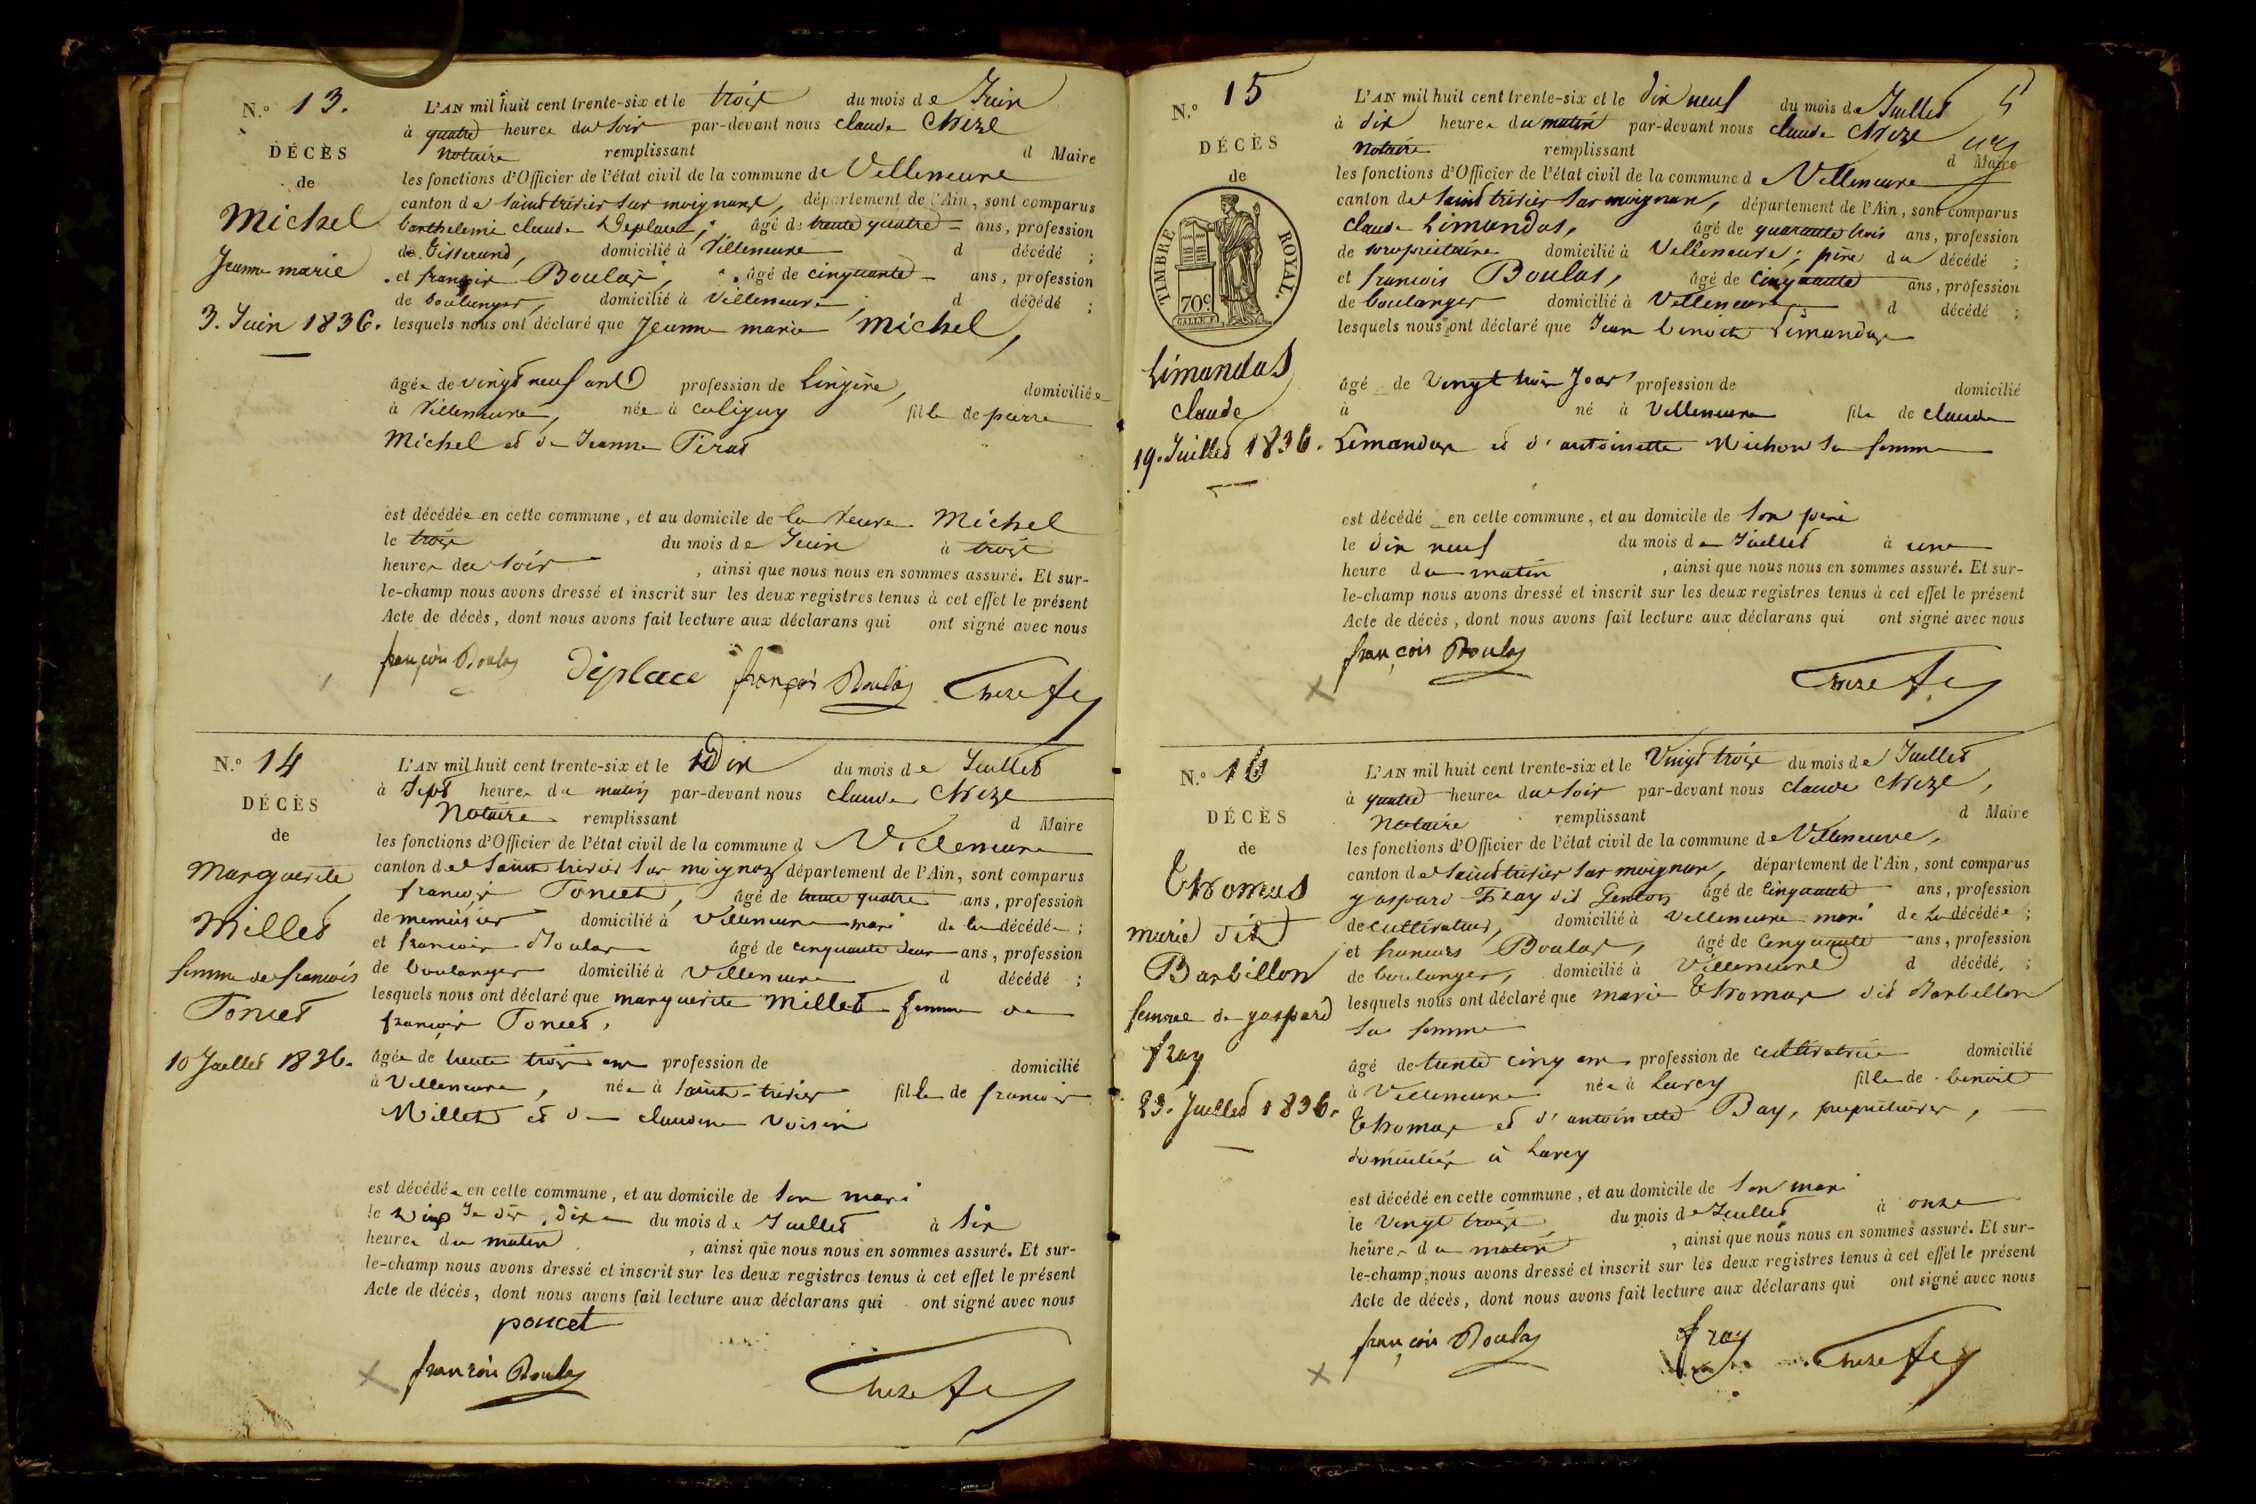 N.º 13.
DÉCÈS
de
Michel
Jeanne marie
3. Juin 1836.
L'AN mil huit cent trente-six et le trois du mois de Juin
à quatre heures du soir par-devant nous claude Cheze
Notaire remplissant d Maire
les fonctions d'Officier de l'état civil de la commune de Villeneuve
canton de saint trivier sur moignans, département de l'Ain, sont comparus
barthelemi claude Deplace, âgé de trente quatre ans, profession
de Tisserand, domicilié à Villeneuve d décédé ;
et françois Boulas, âgé de cinquante ans, profession
de boulanger, domicilié à Villeneuve, d décédé ;
lesquels nous ont déclaré que Jeanne marie Michel,
âgée de vingt neuf ans profession de Lingère, domiciliée
à Villeneuve, née à coligny fille de pierre
Michel et de Jeanne
est décédée en cette commune, et au domicile de la Veuve Michel
le trois du mois de Juin à trois
heures du soir, ainsi que nous nous en sommes assuré. Et sur-
le-champ nous avons dressé et inscrit sur les deux registres tenus à cet effet le présent
Acte de décès, dont nous avons fait lecture aux déclarans qui ont signé avec nous
françois Boulas Déplace françois Boulas Cheze
N.º 14
DÉCÈS
de
Marguerite
Millet
femme de françois
Poncet
10 Juillet 1836.
L'AN mil huit cent trente-six et le Dix du mois de Juillet
à Sept heures du matin par-devant nous claude Cheze
Notaire remplissant d Maire
les fonctions d'Officier de l'état civil de la commune d Villeneuve
canton de Saint trivier sur moignans département de l'Ain, sont comparus
françois Poncet, âgé de trente quatre ans, profession
de menuisier domicilié à Villeneuve mari de la décédée ;
et françois Boulas âgé de cinquante deux ans, profession
de boulanger domicilié à Villeneuve d décédé ;
lesquels nous ont déclaré que marguerite Millet femme de
françois Poncet,
âgée de trente trois ans profession de domicilié
à Villeneuve, née à saint-trivier fille de françois
Millet et de claudine Voisin
est décédée en cette commune, et au domicile de son mari
le dix du mois de Juillet à six
heures du matin, ainsi que nous nous en sommes assuré. Et sur-
le-champ nous avons dressé et inscrit sur les deux registres tenus à cet effet le présent
Acte de décès, dont nous avons fait lecture aux déclarans qui ont signé avec nous
poncet
françois Boulas Cheze
N.º 15
DÉCÈS
de
TIMBRE ROYAL.
70c
Limandas
claude
19. Juillet 1836.
5
L'AN mil huit cent trente-six et le dix neuf du mois de Juillet
à dix heures du matin par-devant nous claude Cheze
Notaire remplissant d Maire
les fonctions d'Officier de l'état civil de la commune d Villeneuve
canton de saint trivier sur moignans, département de l'Ain, sont comparus
claude Limandas, âgé de quarante trois ans, profession
de propriétaire domicilié à Villeneuve ; père du décédé ;
et francois Boulas, âgé de cinquante ans, profession
de boulanger domicilié à Villeneuve d décédé ;
lesquels nous ont déclaré que Jean benoit Limandas
âgé de Vingt trois Jours profession de domicilié
à né à Villeneuve fils de claude
Limandas et d'antoinette Michon sa femme
est décédé en cette commune, et au domicile de son père
le dix neuf du mois de Juillet à une
heure du matin, ainsi que nous nous en sommes assuré. Et sur-
le-champ nous avons dressé et inscrit sur les deux registres tenus à cet effet le présent
Acte de décès, dont nous avons fait lecture aux déclarans qui ont signé avec nous
françois Boulas Cheze
N.º 16
DÉCÈS
de
Thomas
marie dit
Barbillon
femme de gaspard
fray
23. Juillet 1836.
L'AN mil huit cent trente-six et le Vingt trois du mois de Juillet
à quatre heures du soir par-devant nous claude Cheze,
Notaire remplissant d Maire
les fonctions d'Officier de l'état civil de la commune de Villeneuve,
canton de saint trivier sur moignans, département de l'Ain, sont comparus
gaspard Fray dit âgé de cinquante ans, profession
de cultivateur, domicilié à Villeneuve mari de la décédée ;
et francois Boulas, âgé de cinquante ans, profession
de boulanger, domicilié à Villeneuve d décédé, ;
lesquels nous ont déclaré que marie Thomas dit Barbillon
sa femme
âgé de trente cinq ans profession de cultivatrice domicilié
à Villeneuve née à Lurcy fille de benoit
Thomas et d'antoinette Bay, propriétaires,
domiciliés à Lurcy
est décédé en cette commune, et au domicile de son mari
le Vingt trois du mois de Juillet à onze
heures du matin, ainsi que nous nous en sommes assuré. Et sur-
le-champ nous avons dressé et inscrit sur les deux registres tenus à cet effet le présent
Acte de décès, dont nous avons fait lecture aux déclarans qui ont signé avec nous
françois Boulas fray Cheze